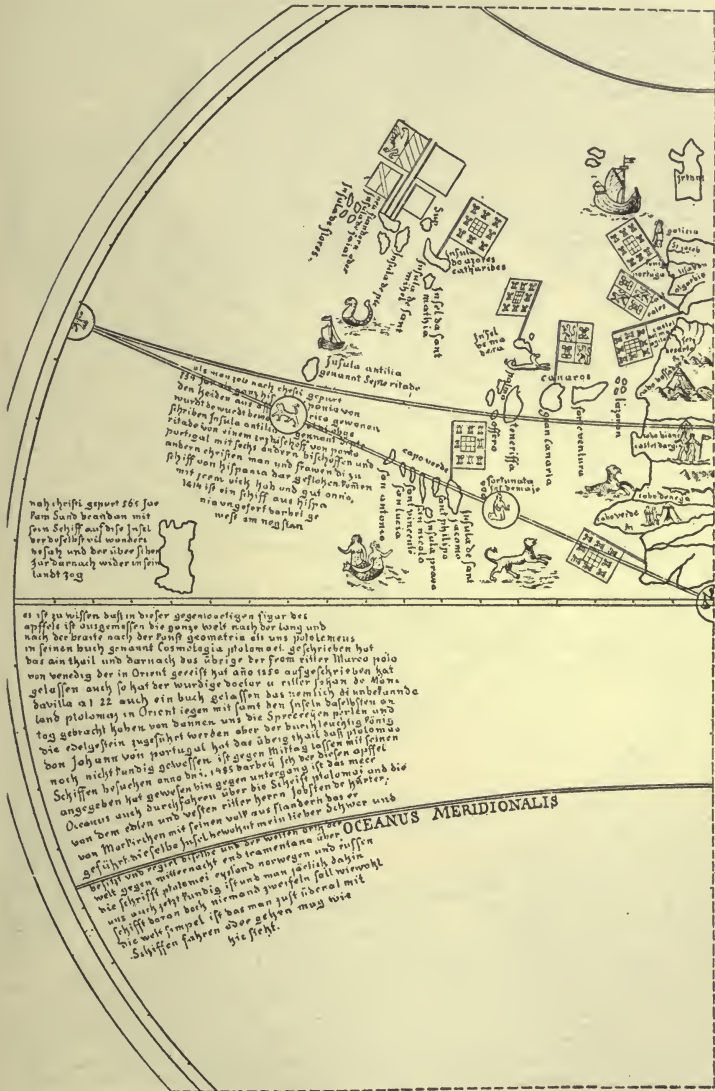 irlant
galicia
St. jacob
portugal
algarbia
Insula de flores
Insula de pic
Insula de sant
mihel
Insel da sant
mathia
Insula
do açores
catharides
Insel
de ma
dera
canaros
palma
teneriffa
gran canaria
forteventura
Insula antilia
genannt Septe ritade
als man zelt nach christi gepurt
734 Jar als ganz hispania von
den heiden aus africa gewonen
wurdt do wurdt bewont obge
schriben Insula antilia genannt Septe
ritade von einem erzbischoff von porto
portugal mit sechs andern bischoffen und
andern christen man und frawen di zu
schiff von hispania dar geflohen komen
mit irem vieh hab und gut anno
1414 ist ein schiff aus hispa
nia ungefert darbei ge
west am negsten
capo verde
son antonio
son lucia
sant vincente
sant nicolo
Insula prava
sant philipo
Insula de sant
jacomo
fortunata
cabo verde
nah christi gepurt 565 Jar
kam Sand brandon mit
sein Schiff auf dise Insel
der doselbst vil wonders
besah und der über siben
Jar darnach wider in sein
landt zog
es ist zu wissen dass in dieser gegenwoertigen figur des
apffels ist ausgemessen die gonze welt nach der lang und
nach der braite nach der kunst geometria als uns ptolomeus
in seinen buch genannt Cosmologia ptolomaei geschrieben hat
das ain thail und darnach das übrige der from ritter Marco polo
von venedig der in Orient gereist hat año 1250 aufgeschrieben hat
gelassen auch so hat der wurdige doctor u ritter Johan de Man
davilla 1322 auch ein buch gelassen das nemlich di unbekannde
land ptolomaus in Orient iegen mit samt den Inseln doselbsten an
tag gebracht haben von dannen uns die Sprecereyen perlen und
die edelgestein zugeführt werden aber der durchleuchtig könig
don Johann von portugal hat das überig thail dass ptolomao
noch nicht kundig gewessen ist gegen Mittag lassen mit seinen
Schiffen besuchen anno dni. 1485 darbey Ich der diesen apffel
angegeben hat gewesen bin gegen untergang ist das meer
Oceanus auch durchfahren über die Schrift ptolomai und die
von dem edlen und vesten ritter herrn Jobsten de härter;
von Morkirchen mit seinen volk aus flandern das er
geführt dieselbe Insel bewohnt mein lieber Schwer und
besitzt und regiert dieselbe und der weiten orth der
welt gegen mitternacht end tramontana über
die schrifft ptolomei eysland norwegen und russen
uns auch jetzt kundig ist und man järlich dahin
schifft daran doch niemand zweifeln soll wiewohl
die welt simpel ist das man just überal mit
Schiffen fahren oder gehen mag wie
hie steht.
OCEANUS MERIDIONALIS